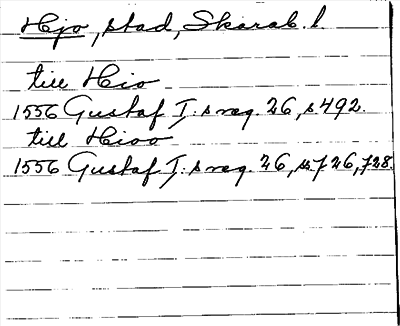 Hjo, stad, Skarab. l.
till Hio
1556 Gustaf I:s reg. 26, s. 492.
till Hioo
1556 Gustaf I:s reg. 26, ss. 726, 728.